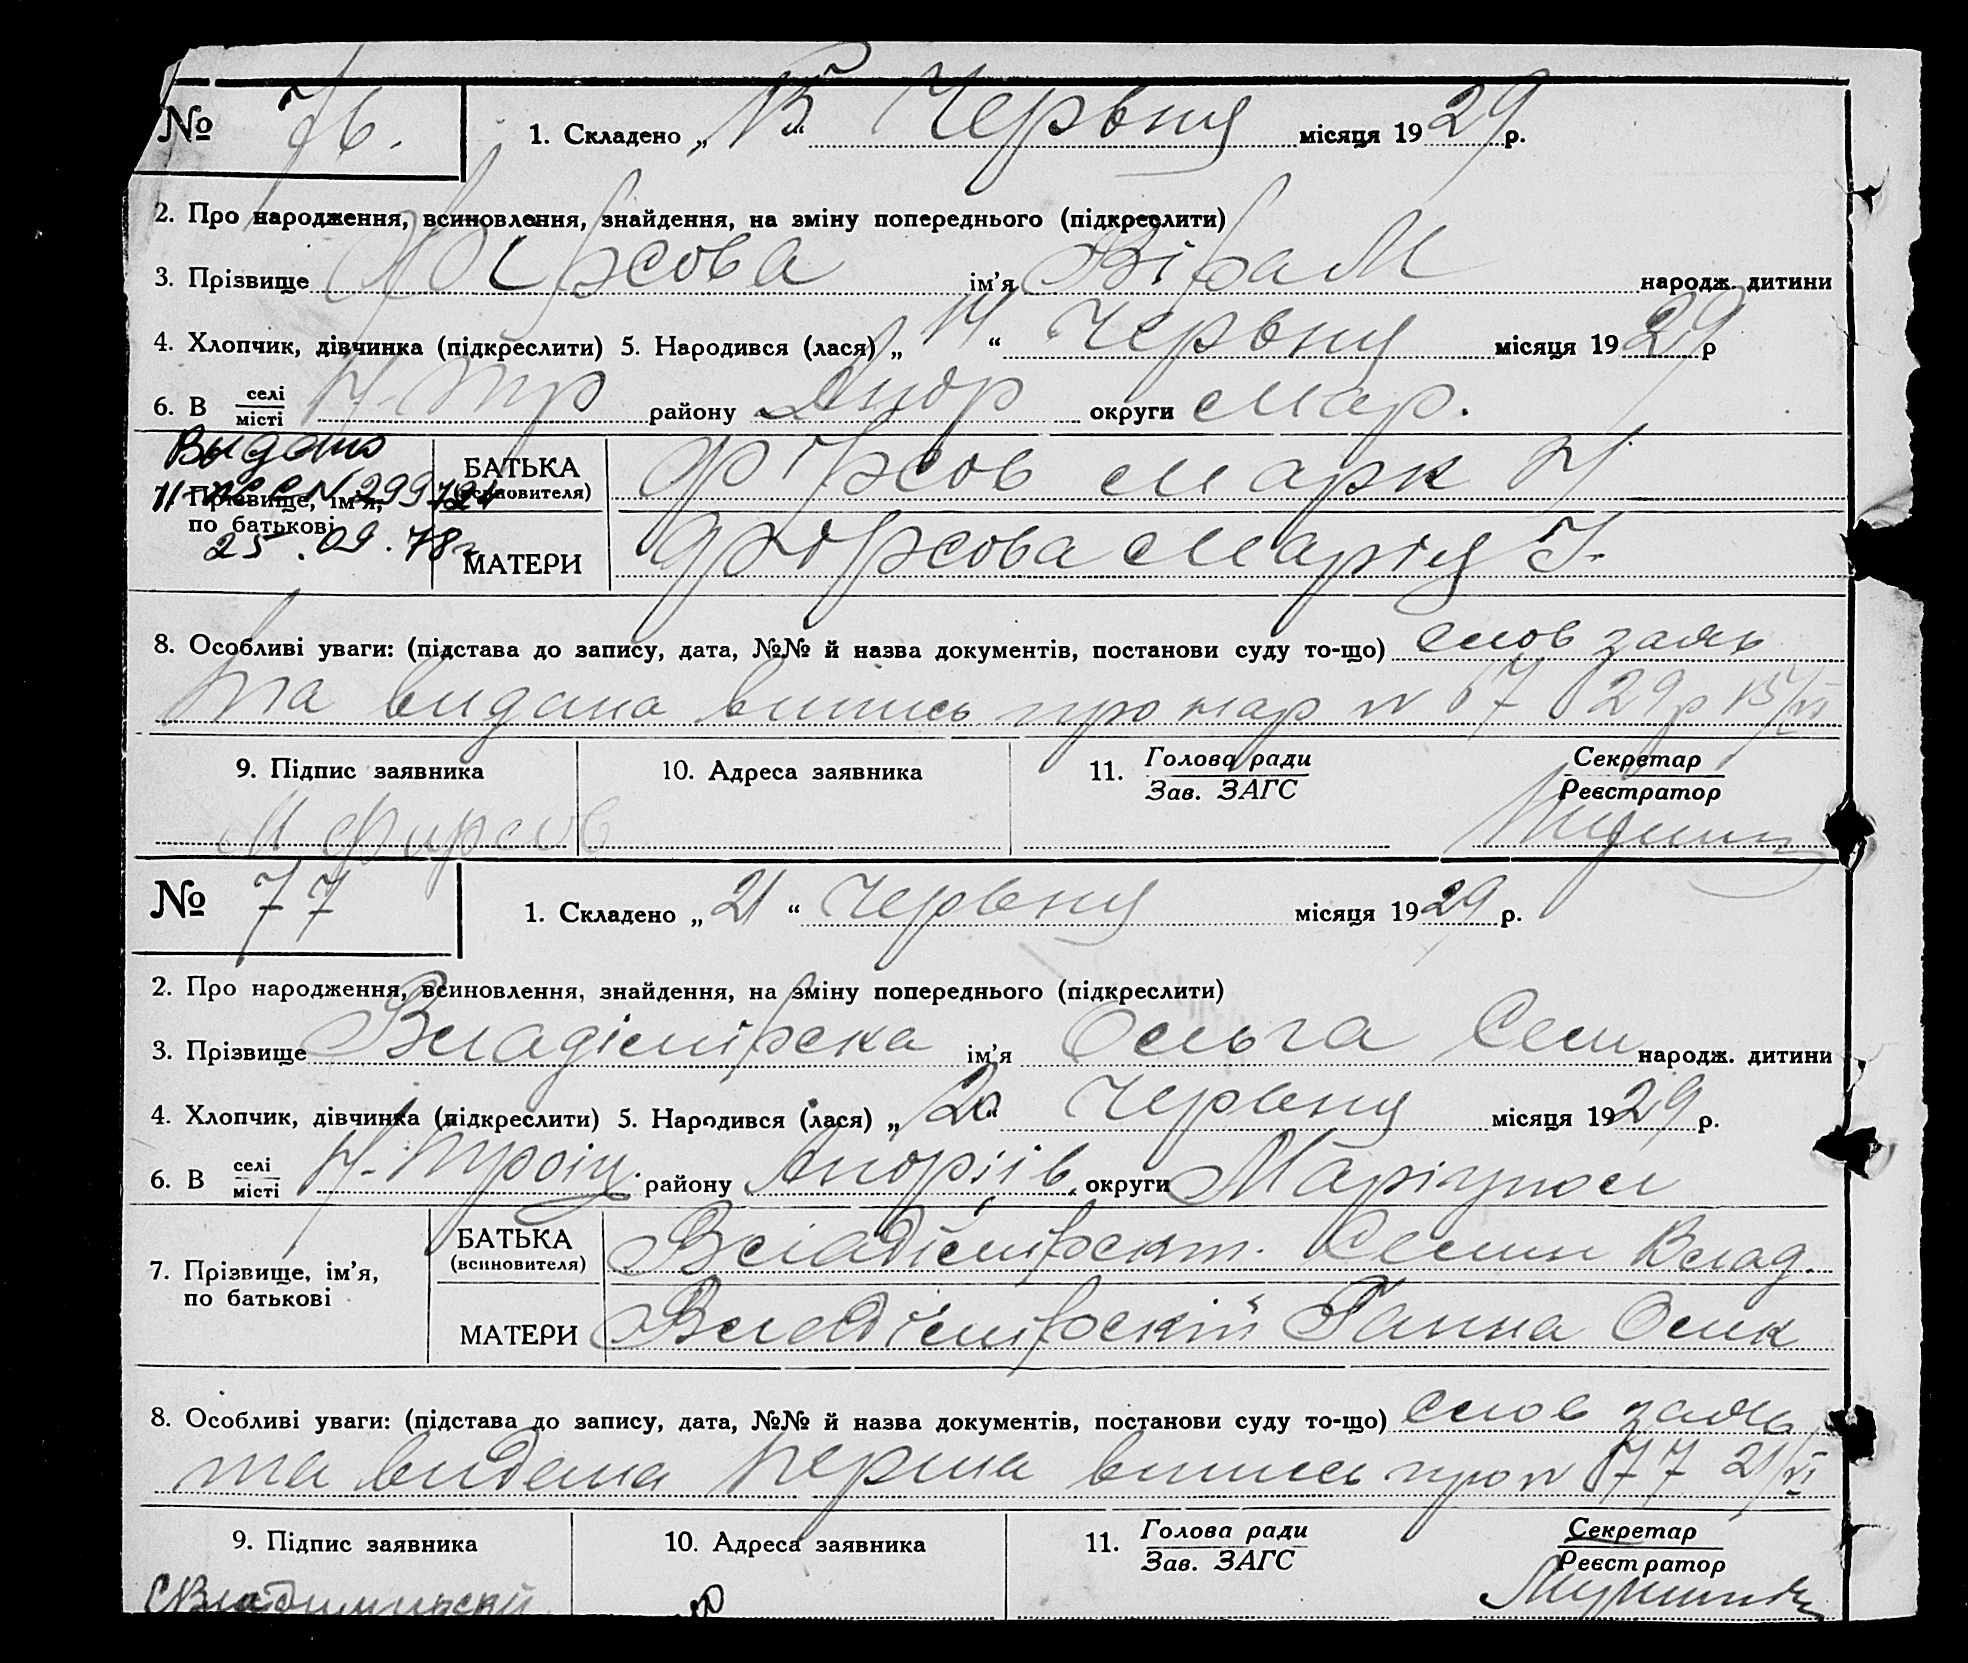 № 76.
1. Складено „ 15 “ Червня місяця 1929 р.
2. Про народження, всиновлення, знайдення, на зміну попереднього (підкреслити)
3. Прізвище Фірсова ім'я Віра М народж. дитини
4. Хлопчик, дівчинка (підкреслити) 5. Народився (лася) „ 14 “ Червня місяця 1929 р
6. В селі місті Н-Тр району Андр округи Мар.
Выдано
II- № 299721
25.09.78г
7. Прізвище, ім'я, по батькові
БАТЬКА (всиновителя) Фірсов Марк Н
МАТЕРИ Фірсова Марія І.
8. Особливі уваги: (підстава до запису, дата, №№ й назва документів, постанови суду то-що) слов заяв
та видана випись про нар № 67 29р 15/VI
9. Підпис заявника 10. Адреса заявника 11. Голова ради Зав. ЗАГС Секретар Реєстратор
М Фирсов
№ 77
1. Складено „ 21 “ Червня місяця 1929 р.
2. Про народження, всиновлення, знайдення, на зміну попереднього (підкреслити)
3. Прізвище Владімірска ім'я Ольга Сем народж. дитини
4. Хлопчик, дівчинка (підкреслити) 5. Народився (лася) „ 20 “ Червня місяця 1929 р.
6. В селі місті Н-Троіц. району Андріів. округи Маріупол
7. Прізвище, ім'я, по батькові
БАТЬКА (всиновителя) Владімірск. Семен Влад.
МАТЕРИ Владімірскій Ганна Осик
8. Особливі уваги: (підстава до запису, дата, №№ й назва документів, постанови суду то-що) слов заяв
та видана перша випись про № 77 21/VI
9. Підпис заявника 10. Адреса заявника 11. Голова ради Зав. ЗАГС Секретар Реєстратор
СВладимирский